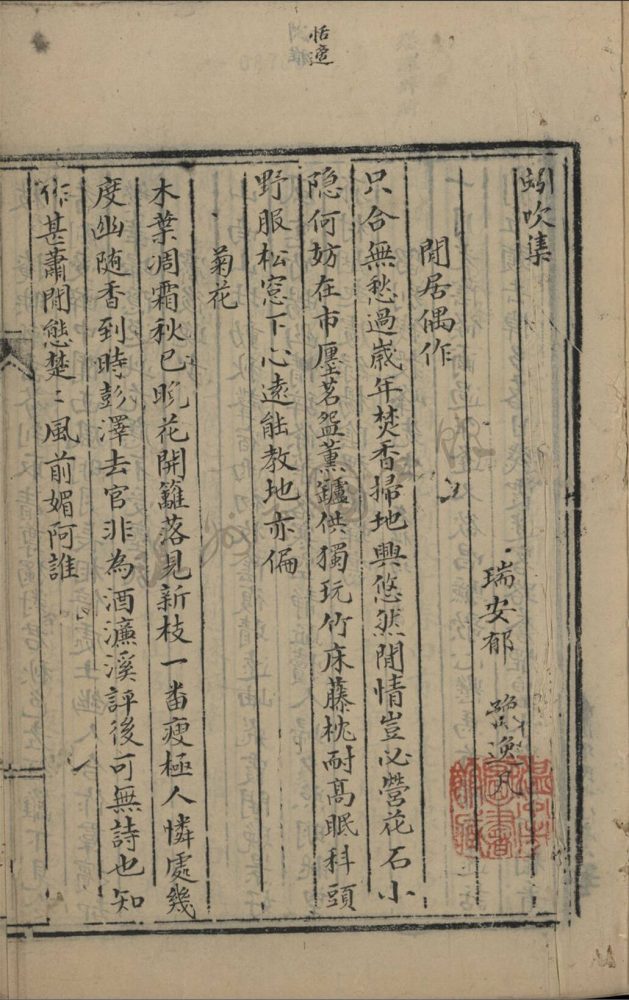 恬適
蚓吹集
瑞安郁 豫逸凡
閒居偶作
只合無愁過歲年焚香掃地興悠然閒情豈必營花石小
隐何妨在市廛茗盌薰鑪供獨玩竹床藤枕耐高眠科頭
野服松窓下心遠能教地亦偏
菊花
木葉凋霜秋已晩花開籬落見新枝一番瘦極人憐處幾
度幽随香到時彭澤去官非為酒濂溪評後可無詩也知
作甚蕭閒態楚〻風前媚阿誰